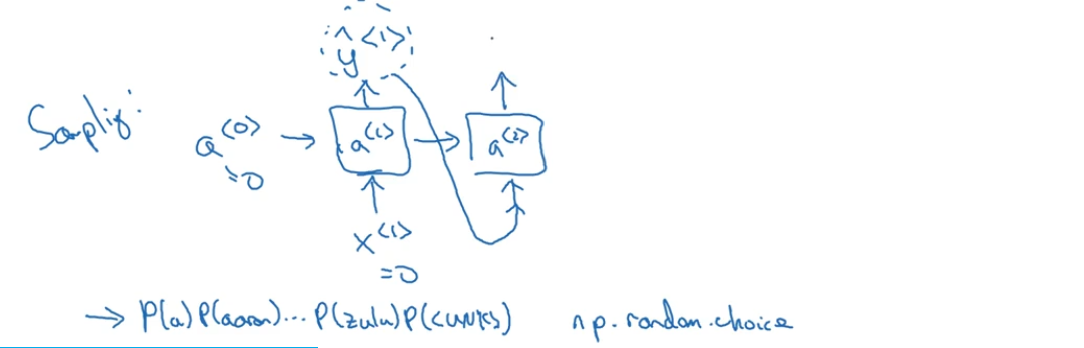 ŷ<1>
Sampling:
a<0> → a<1> → a<2>
=0
x<1>
=0
→ P(a)P(aaron)... P(zulu)P(<UNK>) np.random.choice